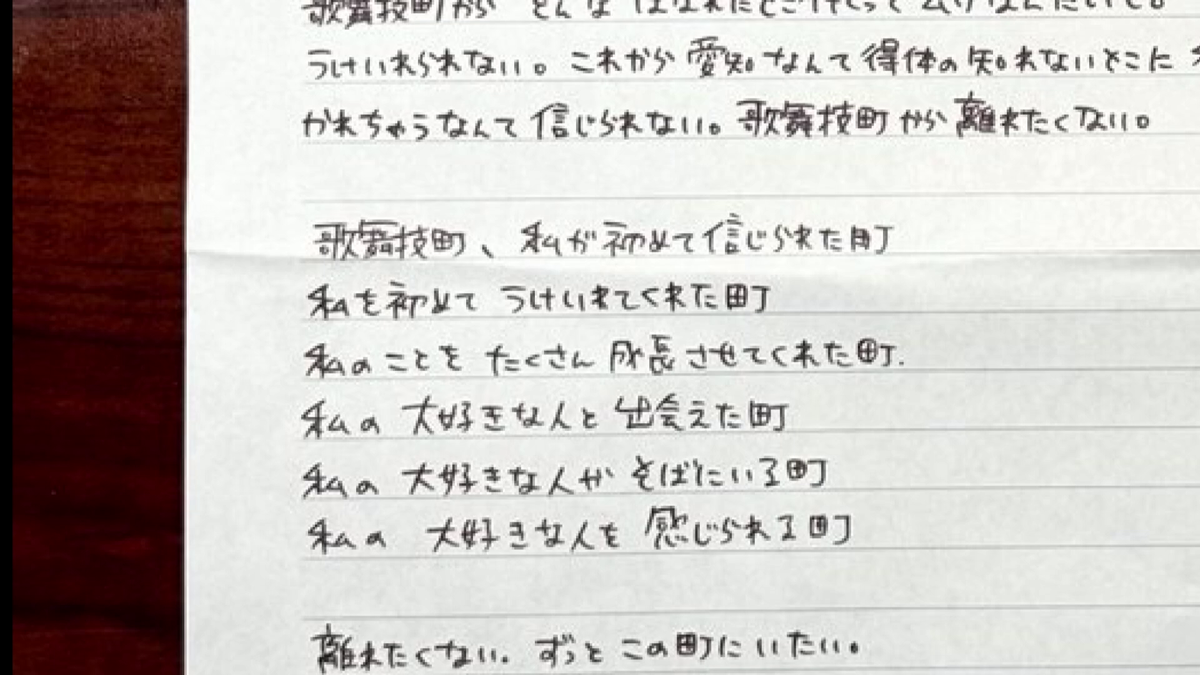 歌舞技町から そんな はなれたとこ
うけいれられない。これから 愛知なんて得体の知れないとこに
かれちゃうなんて信じられない。歌舞技町から離れたくない。
歌舞技町、私が初めて信じられた町
私を初めて うけいれてくれた町
私のことを たくさん 成長させてくれた町.
私の 大好きな人と 出会えた町
私の 大好きな人が そばにいる町
私の 大好きな人を 感じられる町
離れたくない。ずっと この町にいたい。